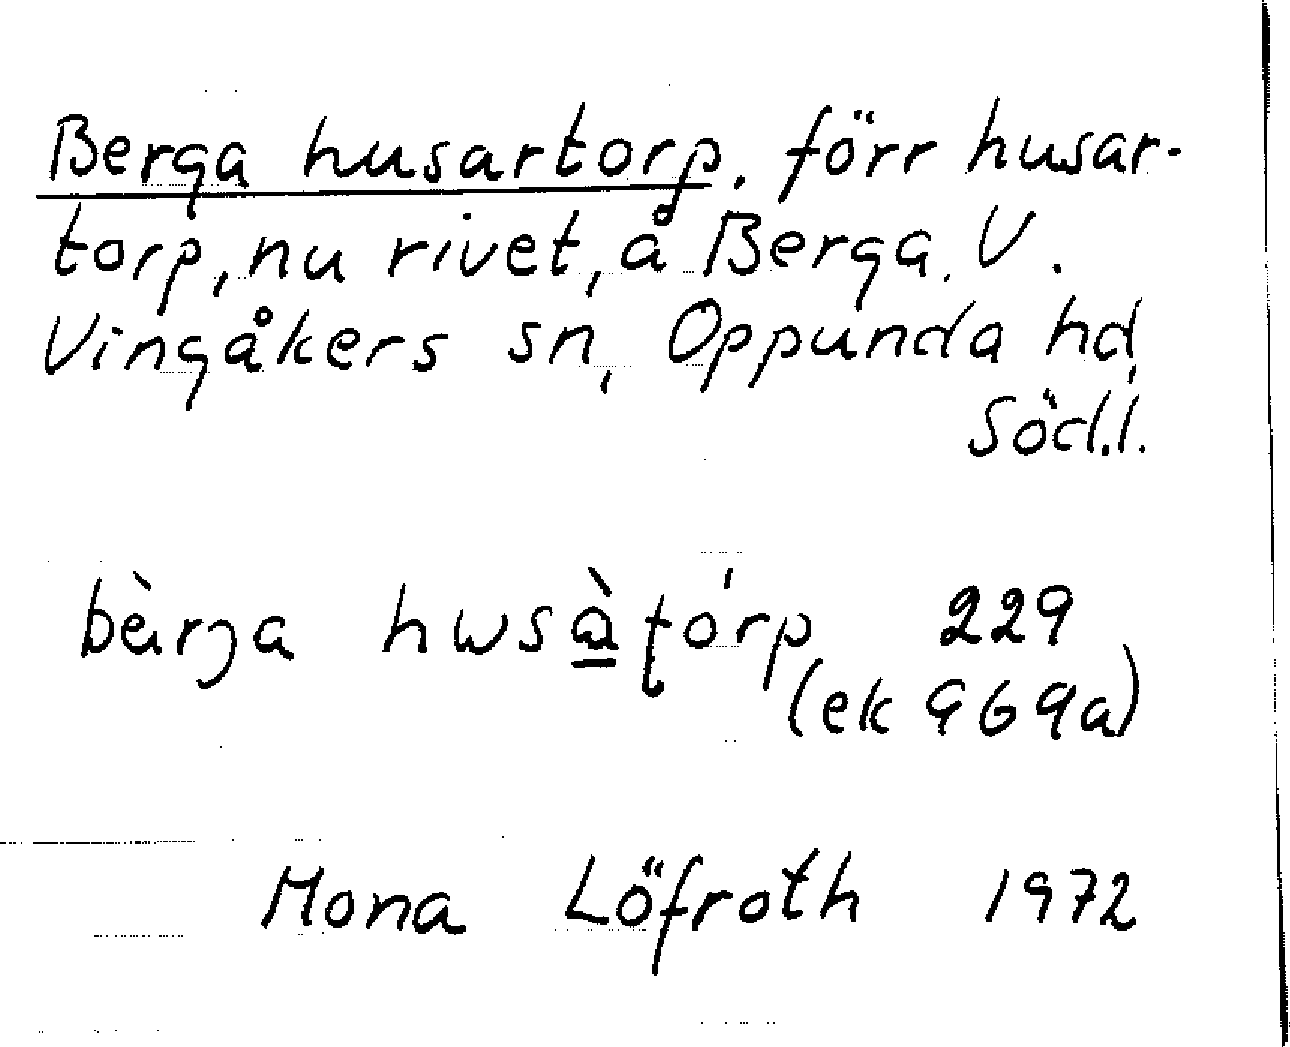 Berga husartorp. förr husar-
torp, nu rivet, å Berga. V.
Vingåkers sn, Oppunda hd,
Söd.l.
hwsà̠ʈórp 229
(ek 969a)
Mona Löfroth 1972